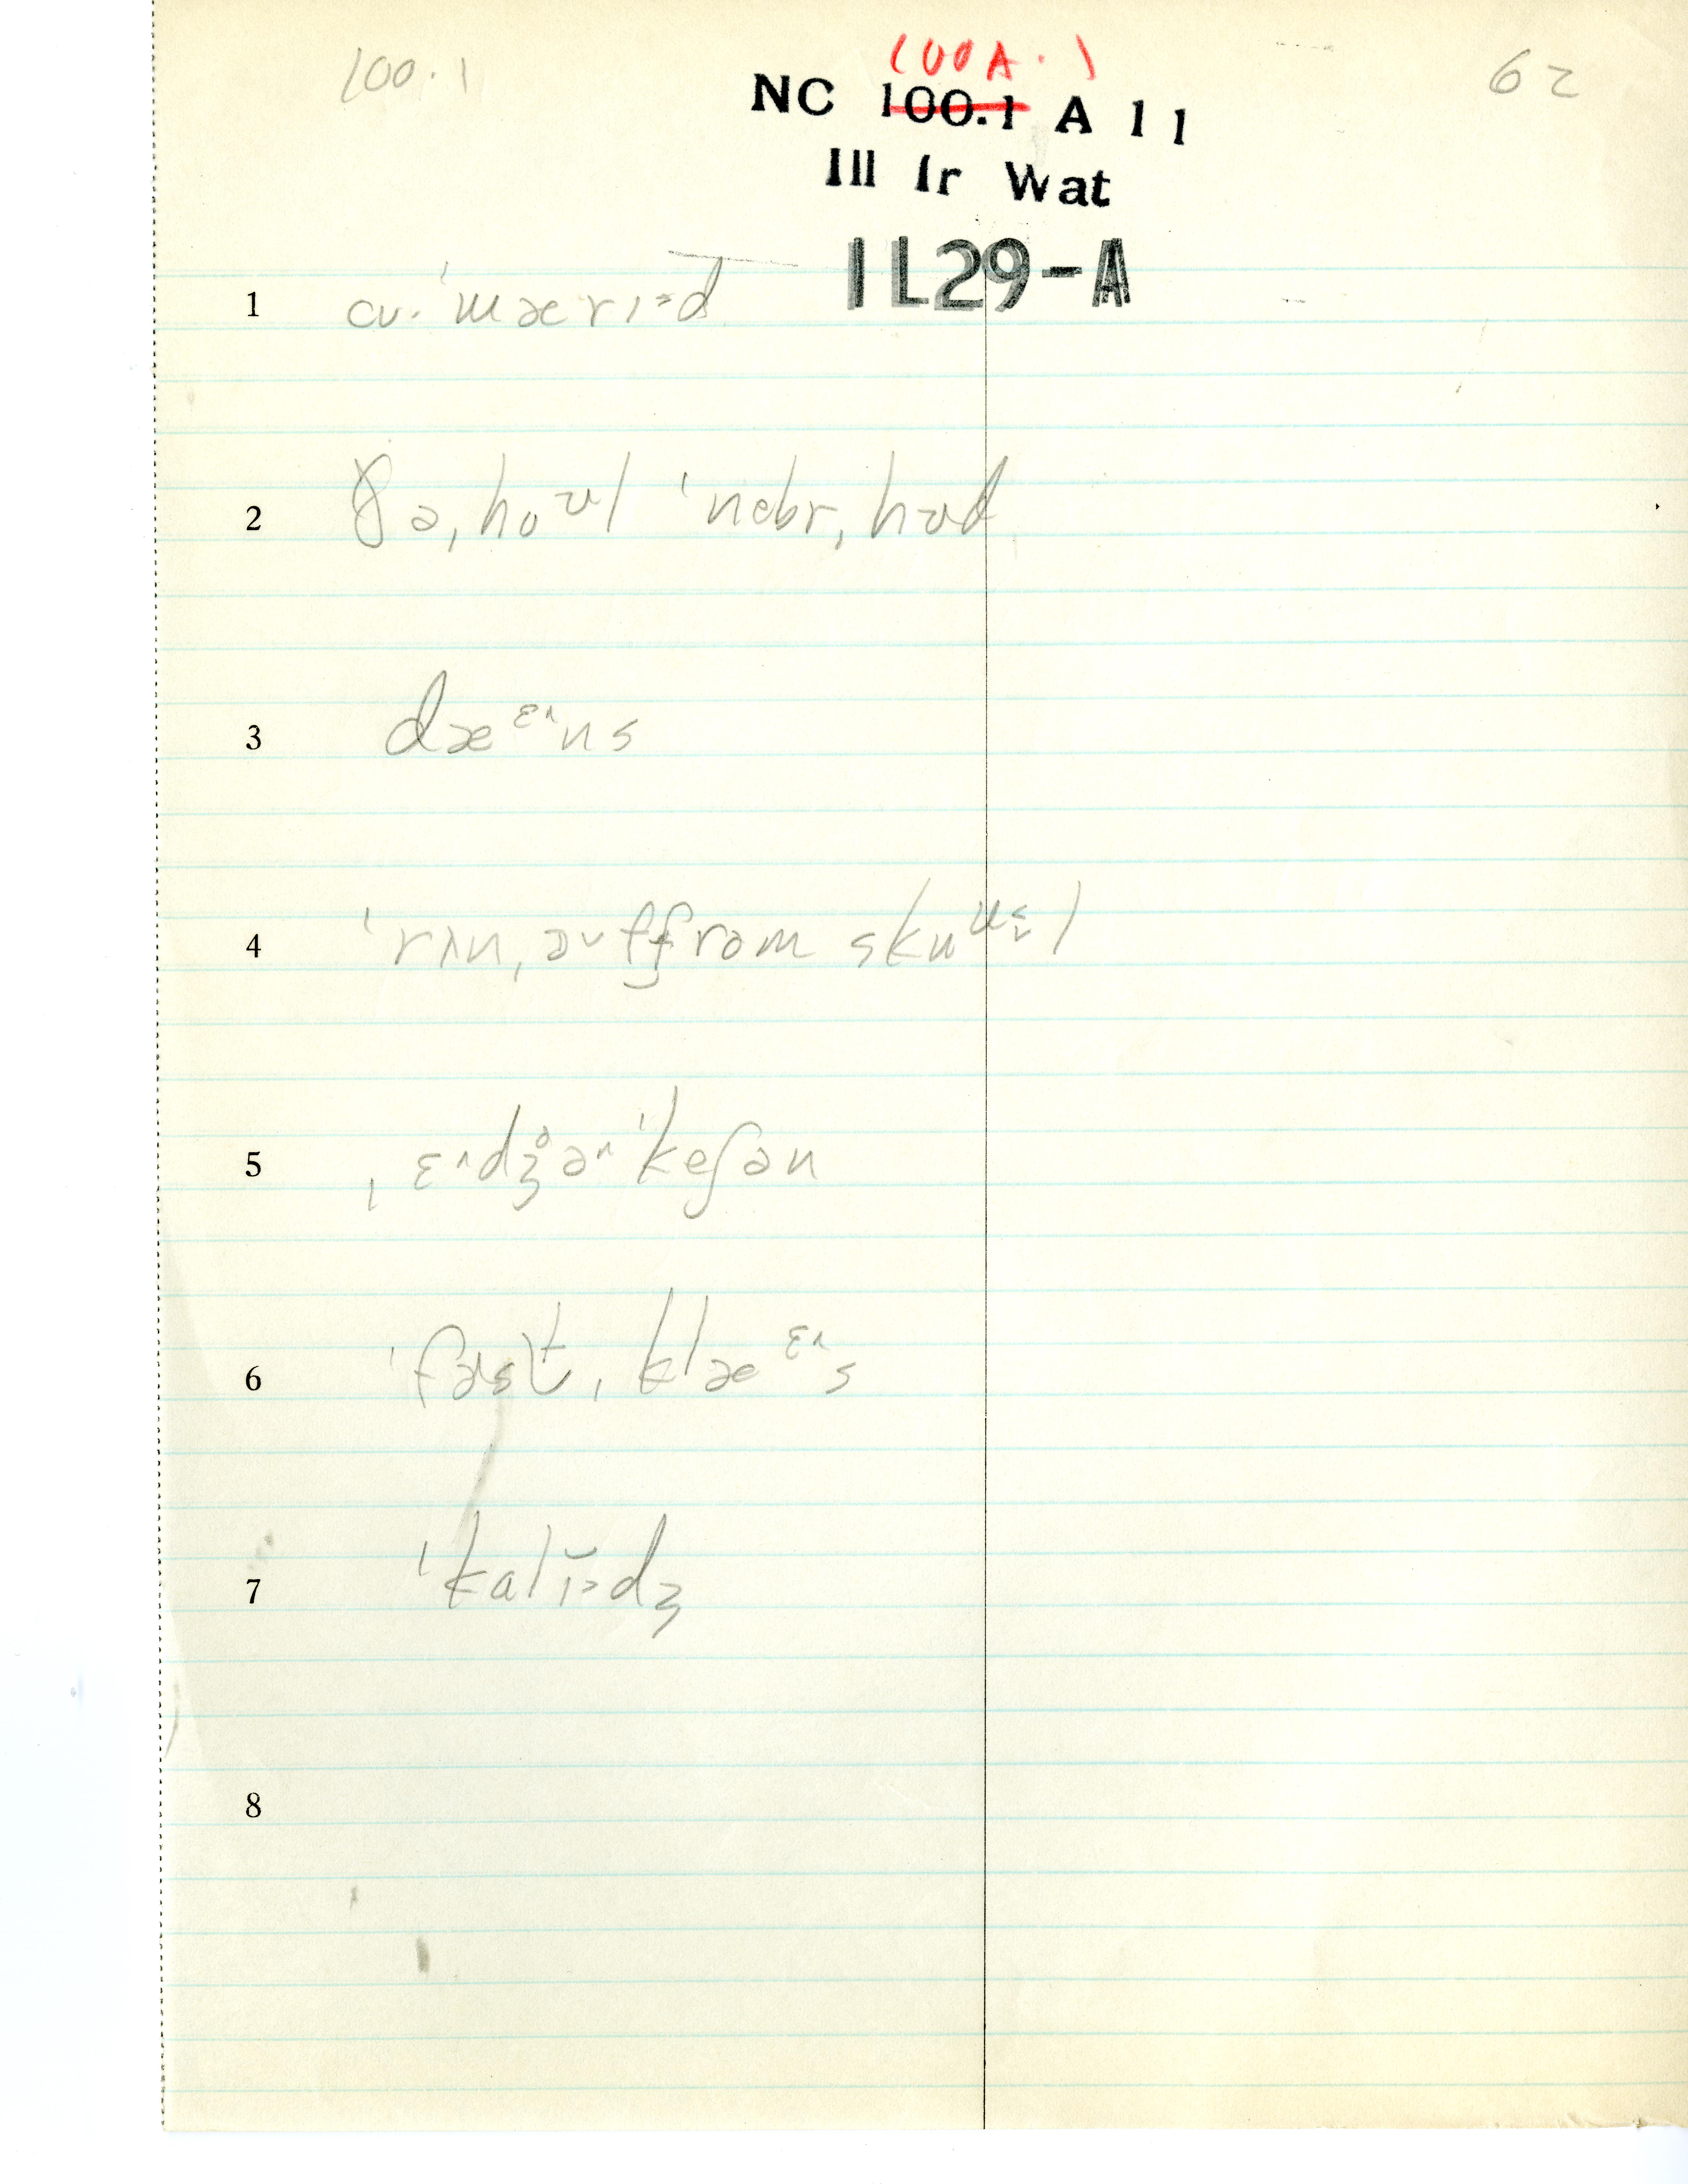 100.1
(00A.)
62
NC 100.1 A 11
Ill Ir Wat
IL29-A
1 cv. ˈmærɪ˃d
2 ðə ˌhoʊl ˈnebrˌhʊd
3 dæᵋ˄ns
4 ˈrʌnˌɔ˅f frəm skuᵘl
5 ˌɛ˄dʒə˄ˈkeʃən
6 ˈfɝst ˌklæᵋ˄s
7 ˈkalɪ̆˃dʒ
8